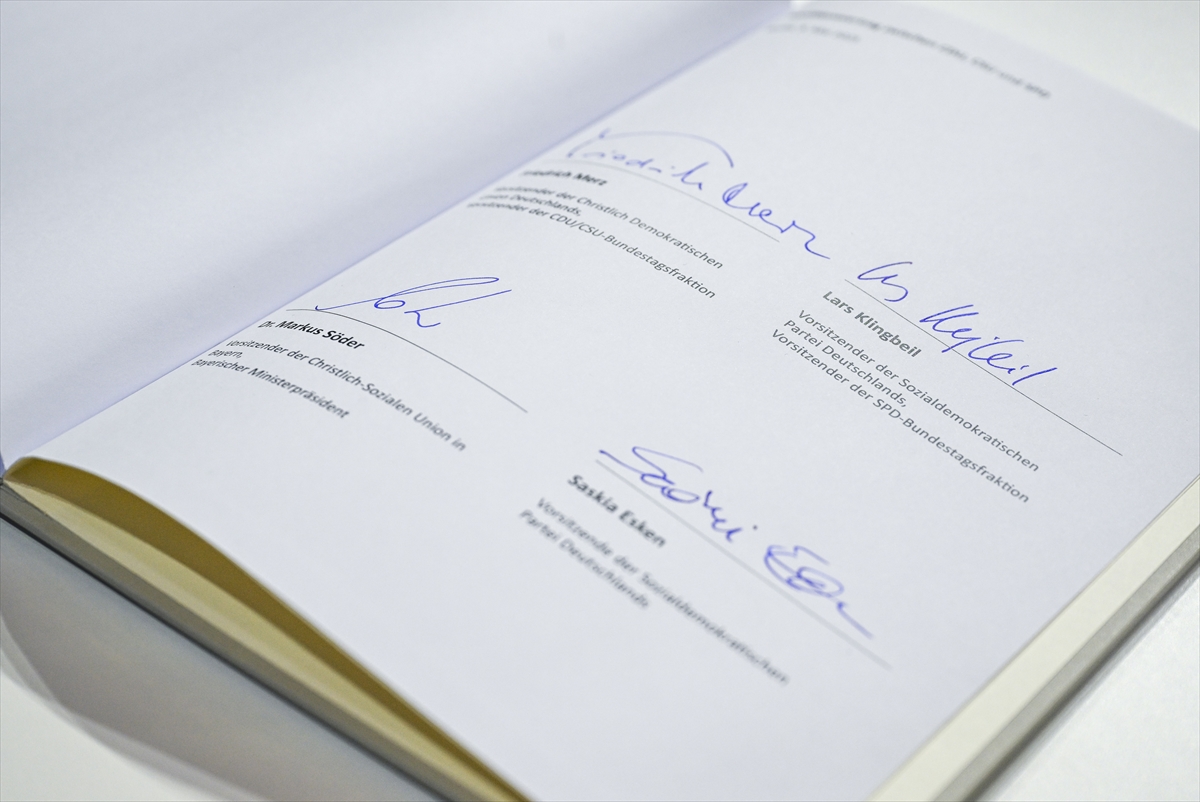 zwischen CDU, CSU und SPD
Friedrich Merz
Friedrich Merz
Vorsitzender der Christlich Demokratischen
Union Deutschlands,
Vorsitzender der CDU/CSU-Bundestagsfraktion
Lars Klingbeil
Lars Klingbeil
Vorsitzender der Sozialdemokratischen
Partei Deutschlands,
Vorsitzender der SPD-Bundestagsfraktion
Dr. Markus Söder
Vorsitzender der Christlich-Sozialen Union in
Bayern,
Bayerischer Ministerpräsident
Saskia Esken
Saskia Esken
Vorsitzende der Sozialdemokratischen
Partei Deutschlands